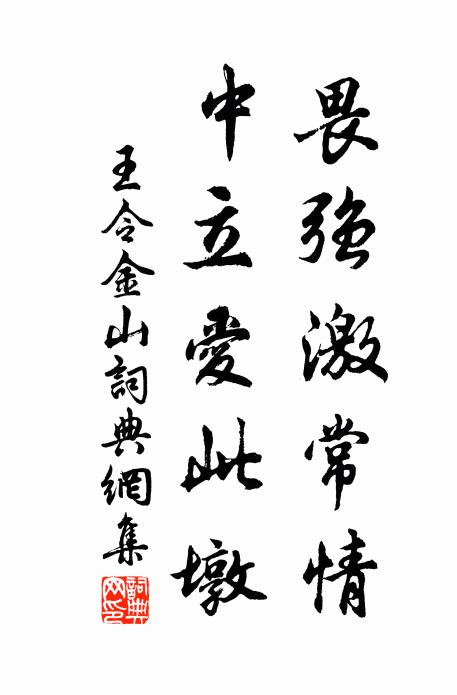 畏強激常情
中立愛此墩
王令金山詞典網集
詞典网印